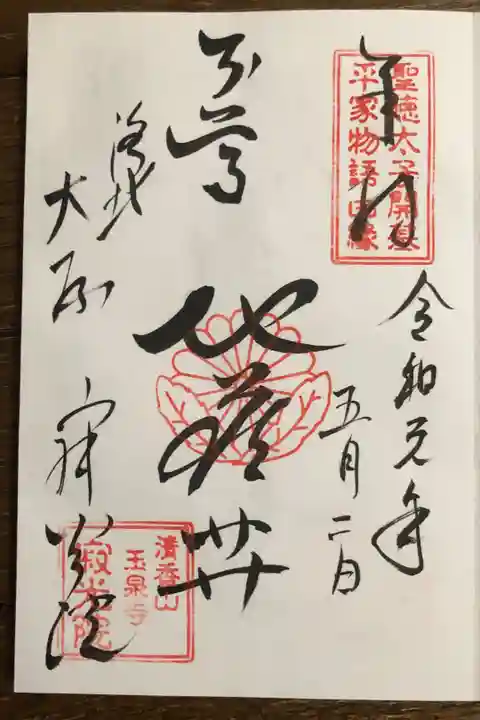 奉拝
聖徳太子開基
平家物語由縁
令和元年
五月二日
本尊
地蔵𦬇
洛北
大原 寂光院
清香山
玉泉寺
寂光院